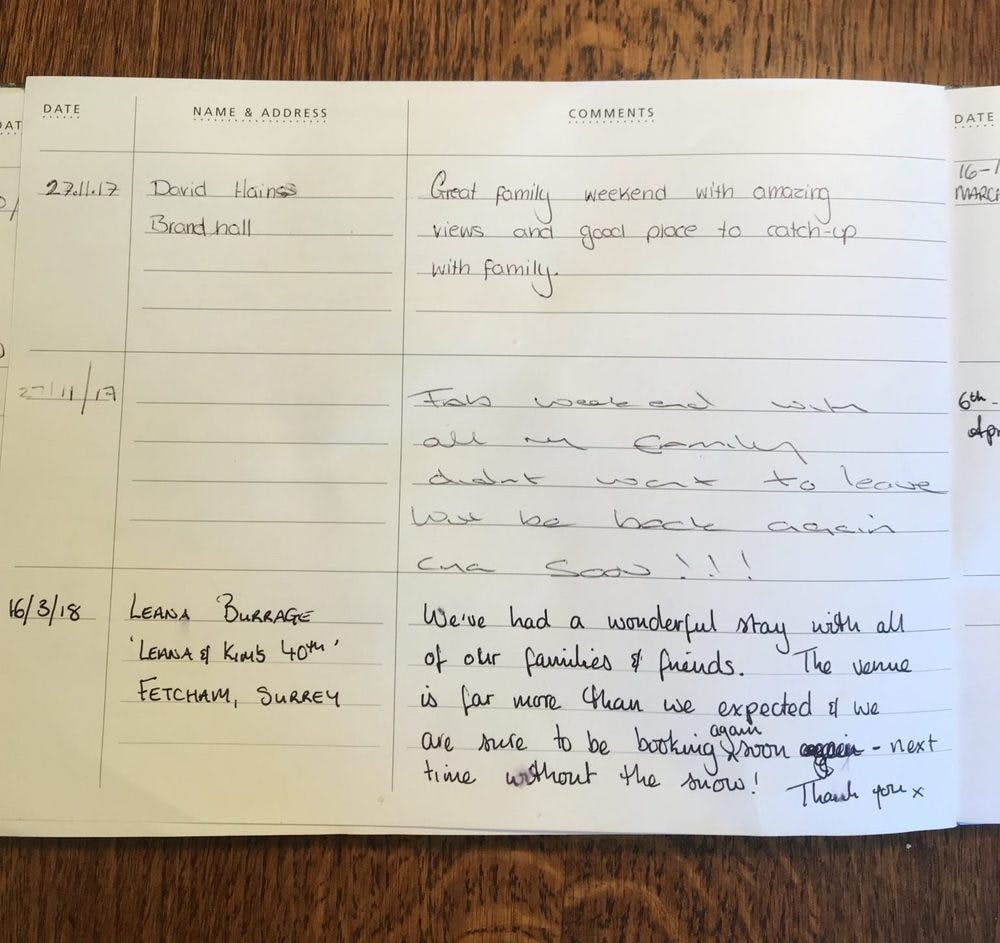 DATE NAME & ADDRESS COMMENTS
27.11.17 David Haines Great family weekend with amazing
Brandhall views and good place to catch-up
with family.
27/11/17 Fab weekend with
all my family
didnt want to leave
Will be back again
Soon!!!
16/3/18 LEANA BURRAGE We've had a wonderful stay with all
'LEANA & KIM'S 40TH' of our families & friends. The venue
FETCHAM, SURREY is far more than we expected & we
are sure to be booking again soon - next
time without the snow! Thank you x
DATE
16-1
MARCH
6th -
Apr